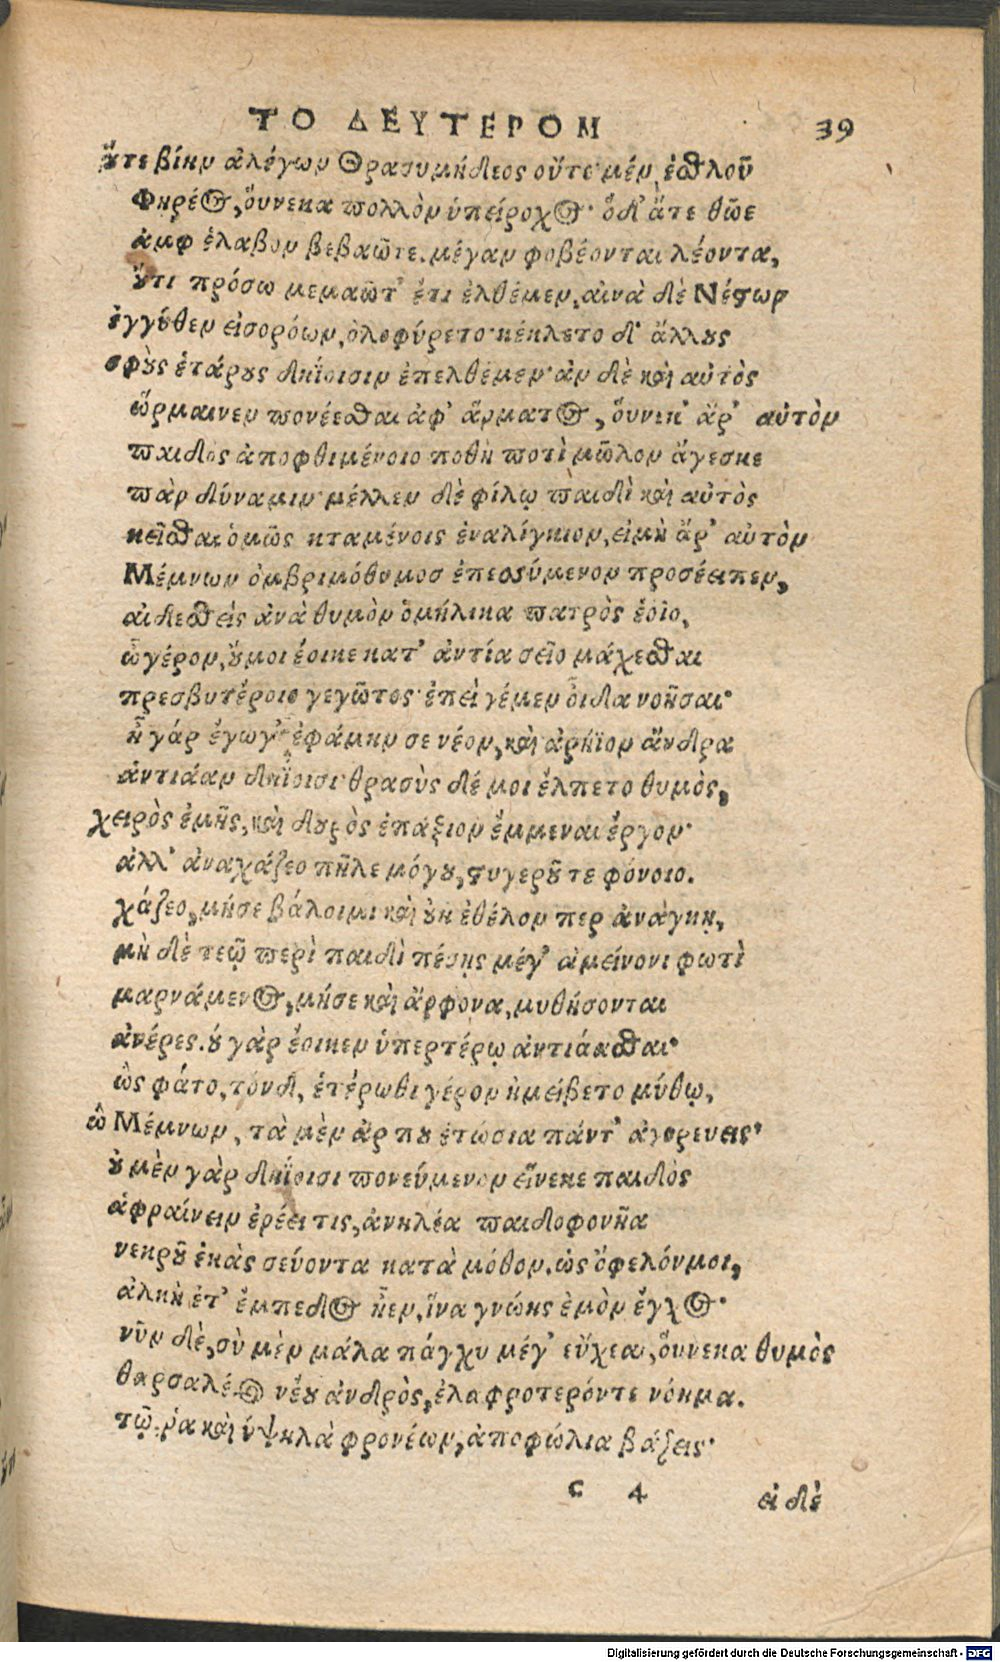 ΤΟ ΔΕΥΤΕΡΟΝ 39
οὔτε βίην ἀλέγων Θρασυμήδεος οὔτε μὲν ἐσθλοῦ
Φηρέος, οὕνεκα πολλὸν ὑπείροχος· ὁ δ' ἅτε θῶε
ἀμφ ἔλαβον βεβαῶτε. μέγαν φοβέονται λέοντα,
οὔτι πρόσω μεμαῶτ' ἔτι ἐλθέμεν, αἰνὰ δὲ Νέστωρ
ἐγγύθεν εἰσορόων, ὀλοφύρετο· κέκλετο δ' ἄλλους
σφοὺς ἑτάρους δηΐοισιν ἐπελθέμεν· ἂν δὲ καὶ αὐτὸς
ὥρμαινεν πονέεσθαι ἀφ' ἅρματος, οὕνεκ' ἄρ' αὐτὸν
παιδὸς ἀποφθιμένοιο ποθὴ ποτὶ μῶλον ἄγεσκε
πὰρ δύναμιν· μέλλεν δὲ φίλῳ παιδὶ καὶ αὐτὸς
κεῖσθαι ὁμῶς κταμένοις ἐναλίγκιον, εἰμὴ ἄρ' αὐτὸν
Μέμνων ὀμβριμόθυμοσ ἐπεσσύμενον προσέειπεν,
αἰδεσθεὶς ἀνὰ θυμὸν ὁμήλικα πατρὸς ἑοῖο,
ὦ γέρον, οὔ μοι ἔοικε κατ' ἀντία σεῖο μάχεσθαι
πρεσβυτέροιο γεγῶτος· ἐπεὶ γέμεν οἶδα νοῆσαι·
ἦ γάρ ἔγωγ' ἐφάμην σε νέον, καὶ ἀρήϊον ἄνδρα
ἀντιάαν δηΐοισι· θρασὺς δέ μοι ἔλπετο θυμὸς,
χειρὸς ἐμῆς, καὶ δουρὸς ἐπάξιον ἔμμεναι ἔργον·
ἀλλ' ἀναχάζεο τῆλε μόγου, στυγεροῦ τε φόνοιο.
χάζεο, μήσε βάλοιμι καὶ οὐκ ἐθέλον περ ἀνάγκῃ,
μὴ δὲ τεῷ περὶ παιδὶ πέσῃς μέγ' ἀμείνονι φωτὶ
μαρνάμενος, μήσε καὶ ἄρφονα, μυθήσονται
ἀνέρες. οὐ γὰρ ἔοικεν ὑπερτέρῳ ἀντιάασθαι·
ὣς φάτο, τόνδ, ἑτέρωθι γέρον ἠμείβετο μύθῳ,
ὦ Μέμνων, τὰ μὲν ἄρ που ἐτώσια πάντ' ἀγορευεις·
οὐ μὲν γὰρ δηΐοισι πονεύμενον εἵνεκε παιδὸς
ἀφραίνειν ἐρέει τις, ἀνηλέα παιδοφονῆα
νεκροῦ ἑκὰς σεύοντα κατὰ μόθον. ὡς ὄφελόνμοι,
ἀλκὴ ἔτ' ἔμπεδος ἦεν, ἵνα γνώῃς ἐμὸν ἔγχος·
νῦν δὲ, σὺ μὲν μάλα πάγχυ μέγ' εὔχεαι, οὕνεκα θυμὸς
θαρσαλέος νέου ἀνδρὸς, ἐλαφροτερόντε νόημα.
τῷ ῥα καὶ ὑψηλὰ φρονέων, ἀποφώλια βάζεις·
c 4 εἰ δὲ
Digitalisierung gefördert durch die Deutsche Forschungsgemeinschaft - DFG